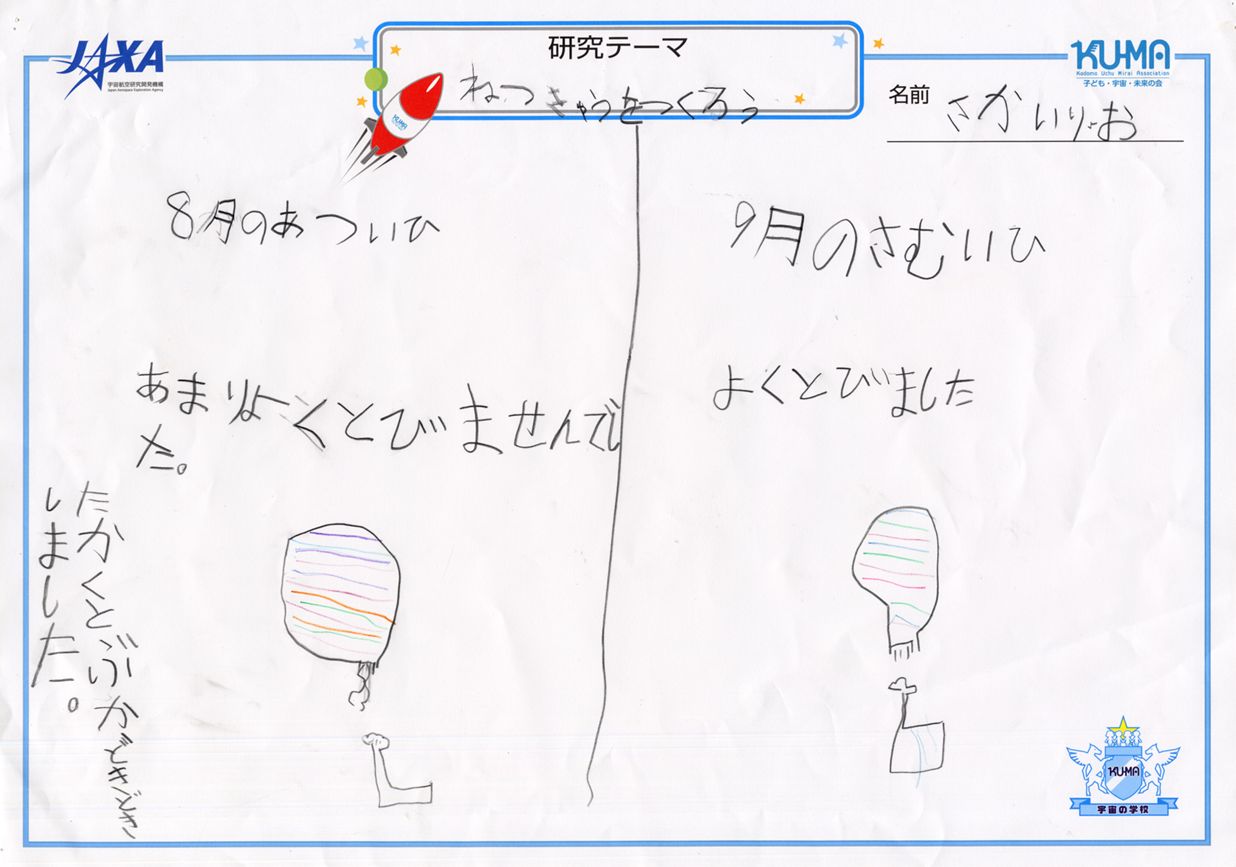 JAXA
宇宙航空研究開発機構
Japan Aerospace Exploration Agency
研究テーマ
ねつききゅうをつくろう
KU-MA
Kodomo Uchu Mirai Association
子ども・宇宙・未来の会
名前
さかいりょお
8月のあついひ
あまりよくとびませんでし
た。
たかくとぶかどきどき
しました。
9月のさむいひ
よくとびました
KU-MA
KU-MA
宇宙の学校